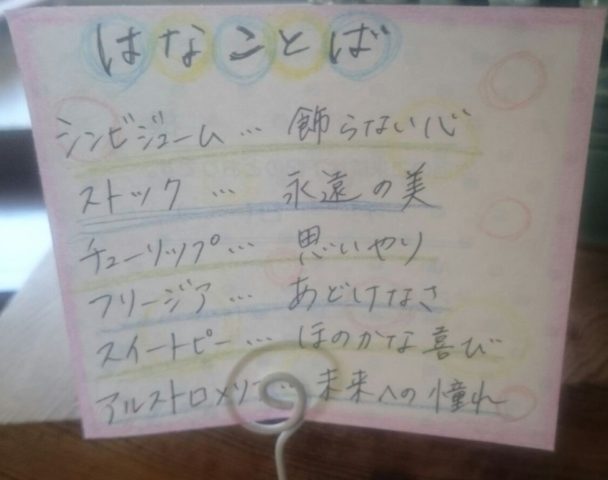 はなことば
シンビジューム … 飾らない心
ストック … 永遠の美
チューリップ … 思いやり
フリージア … あどけなさ
スイートピー … ほのかな喜び
アルストロメリア … 未来への憧れ